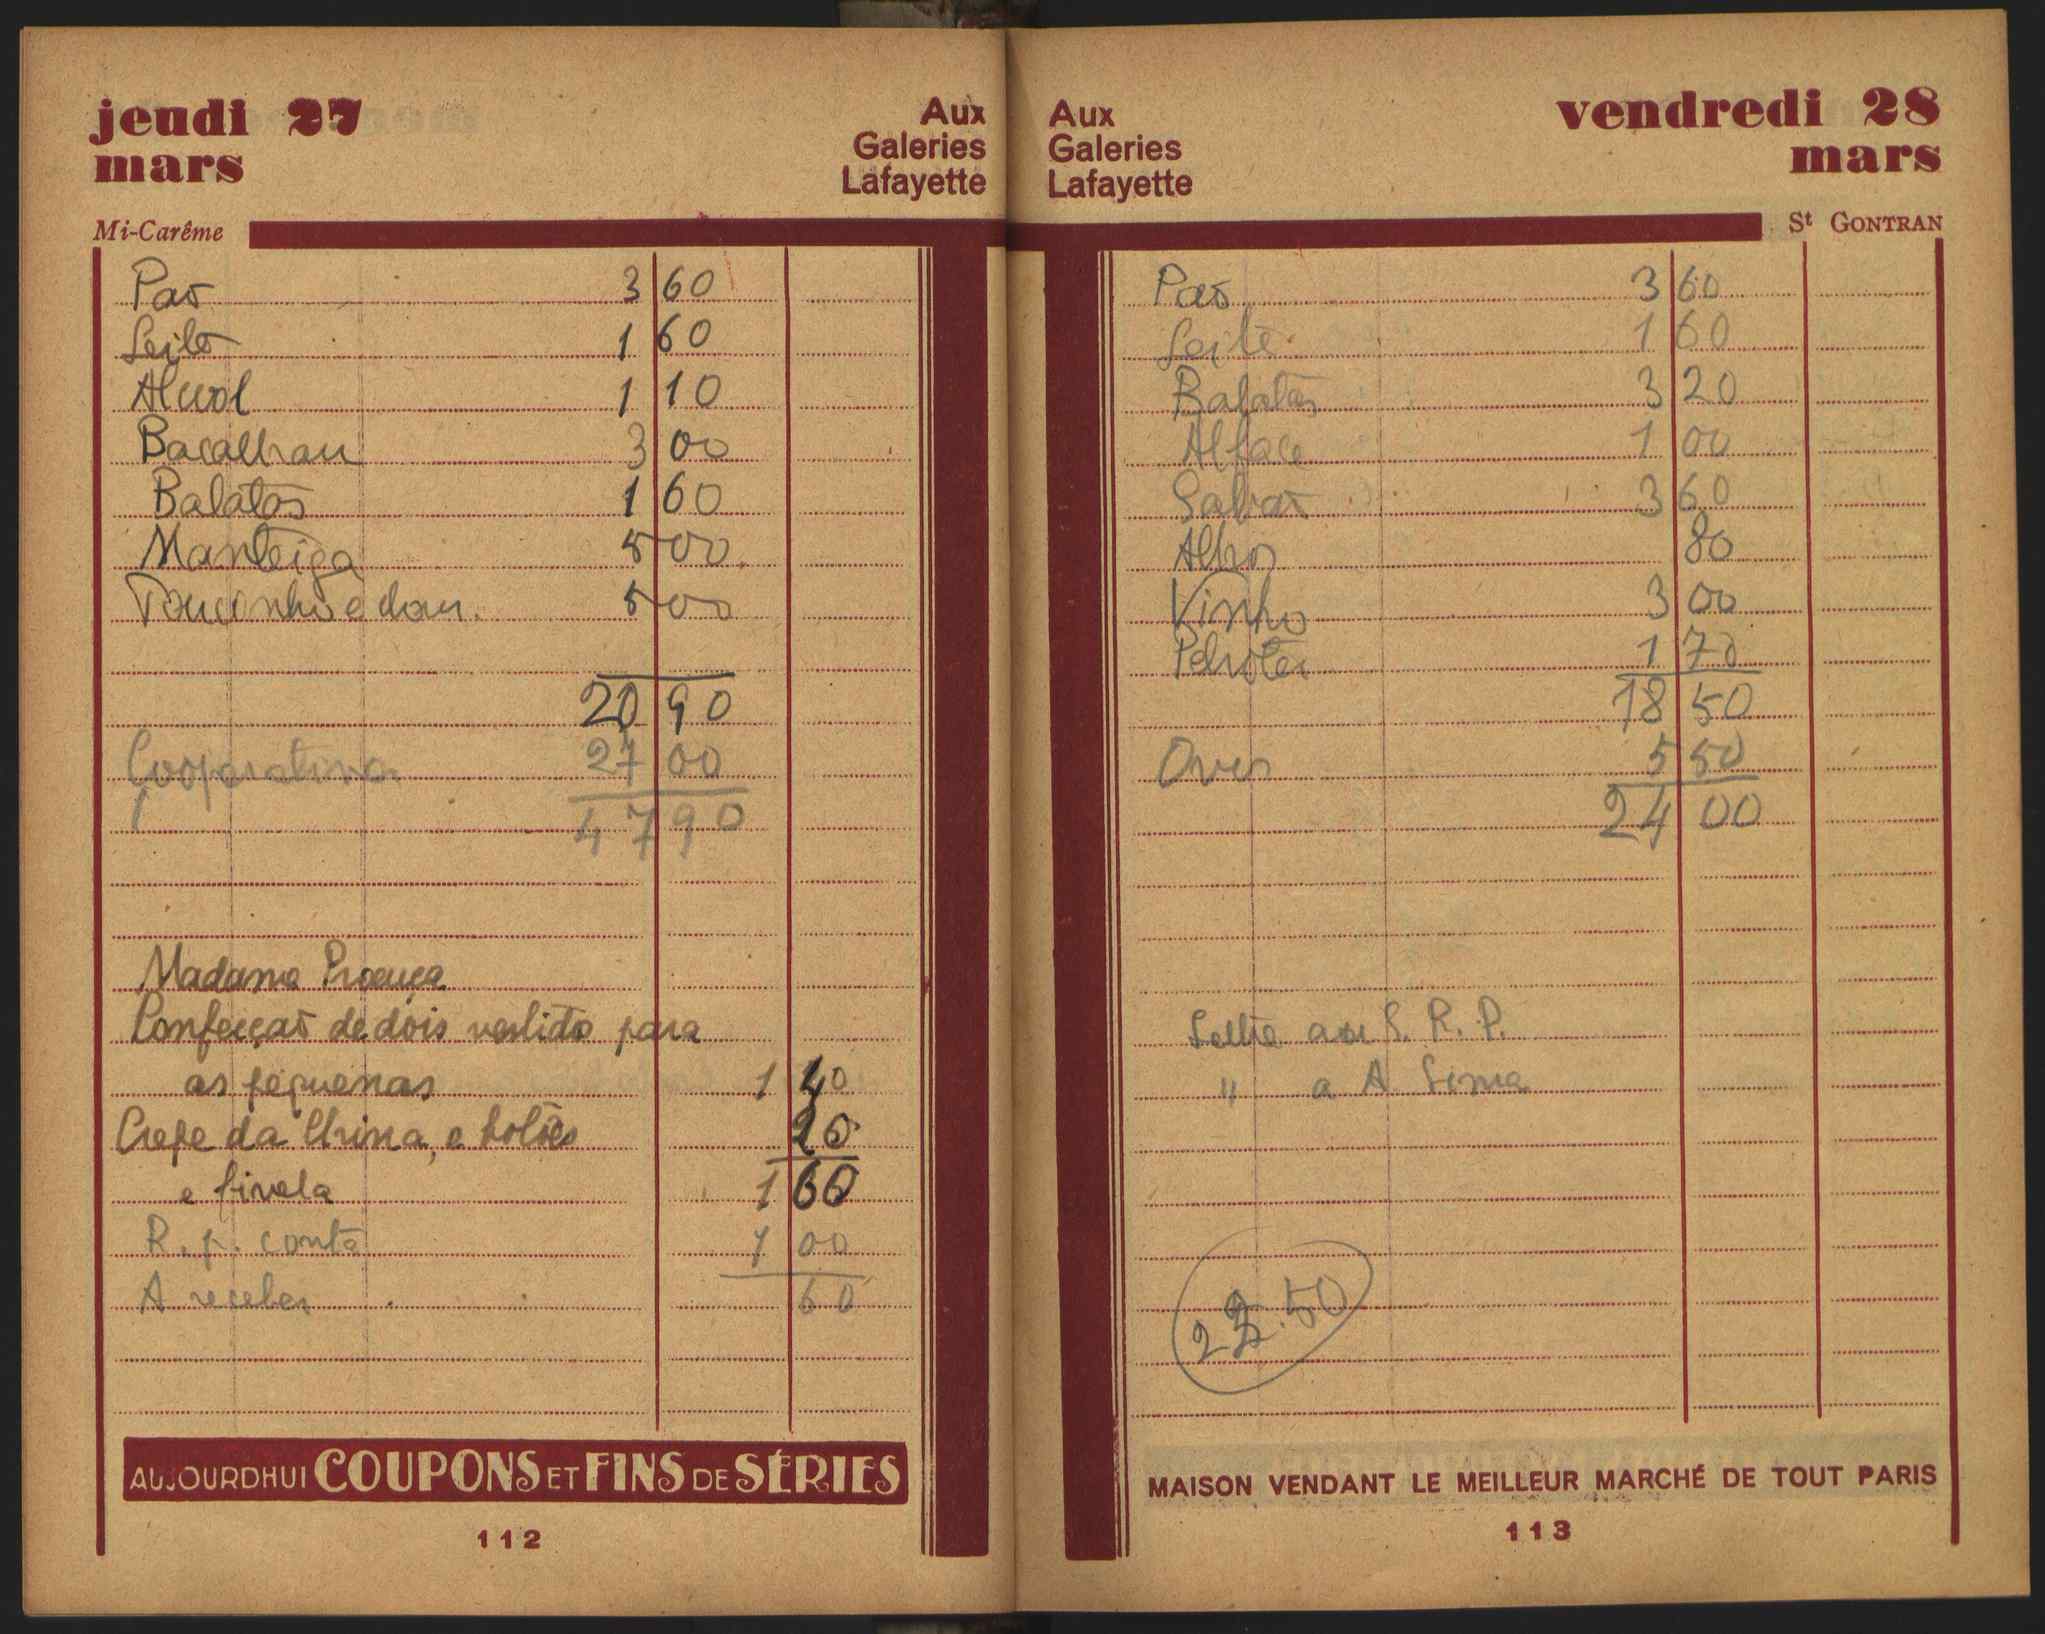 jeudi 27
mars
Aux
Galeries
Lafayette
Mi-Carême
Pão 3 60
Leite 1 60
Alcool 1 10
Bacalhau 3 00
Batatas 1 60
Manteiga 5 00
Toucinho e dou. 5 00
20 90
Cooperativa 27 00
47 90
Madame Proença
Confecção de dois vestido para
as pequenas 1 40
Crepe da China, e botões 20
e fivela 1 60
R. p. conta 1 00
A receber 60
AUJOURDHUI COUPONS ET FINS DE SÉRIES
112
Aux
Galeries
Lafayette
vendredi 28
mars
St GONTRAN
Pão 3 60
Leite 1 60
Batatas 3 20
Alface 1 00
Sabão 3 60
Alhos 80
Vinho 3 00
1 70
18 50
Ovos 5 50
24 00
Lettre au S. R. P.
" a A Lima
.50
MAISON VENDANT LE MEILLEUR MARCHÉ DE TOUT PARIS
113